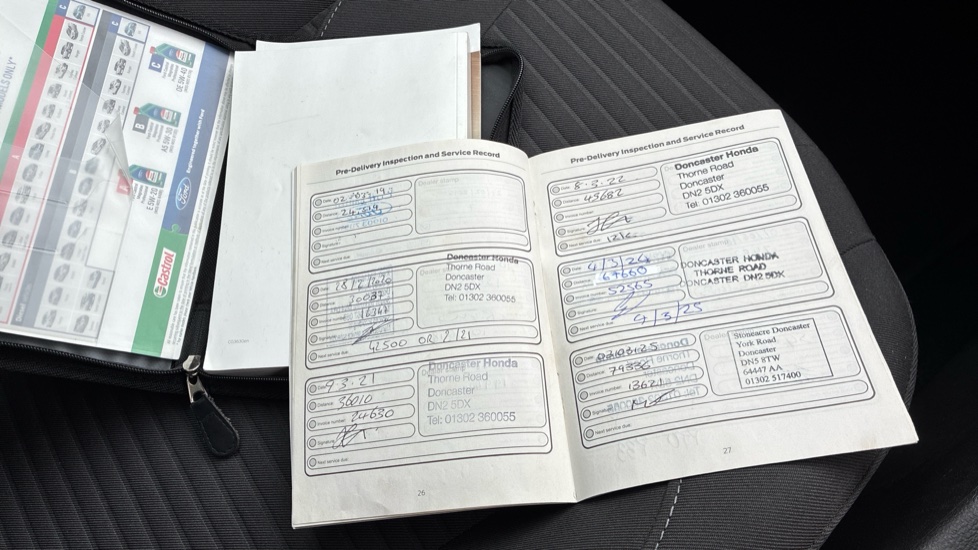 MODELS ONLY*
C
A
C
DE 5W-40
B
A5 5W-30
A
E 5W-20
Engineered together with Ford
Ford
Castrol
Pre-Delivery Inspection and Service Record
Date
Distance
Invoice number
Signature
Next service due:
Date 28/2/2020
Distance 30037
Invoice number
Signature
Next service due: 42500 OR 2/21
Doncaster Honda
Thorne Road
Doncaster
DN2 5DX
Tel: 01302 360055
Date 9.3.21
Distance 36010
Invoice number 24630
Signature
Next service due:
Doncaster Honda
Thorne Road
Doncaster
DN2 5DX
Tel: 01302 360055
26
Pre-Delivery Inspection and Service Record
Date 8.3.22
Distance 43682
Invoice number
Signature
Next service due:
Doncaster Honda
Thorne Road
Doncaster
DN2 5DX
Tel: 01302 360055
Date 4/3/24
Distance 67660
Invoice number 52565
Signature
Next service due: 4/3/25
Dealer stamp
DONCASTER HONDA
THORNE ROAD
DONCASTER DN2 5DX
Date 03.03.25
Distance 74336
Invoice number 13621
Signature
Next service due:
Stoneacre Doncaster
York Road
Doncaster
DN5 8TW
64447 AA
01302 517400
27